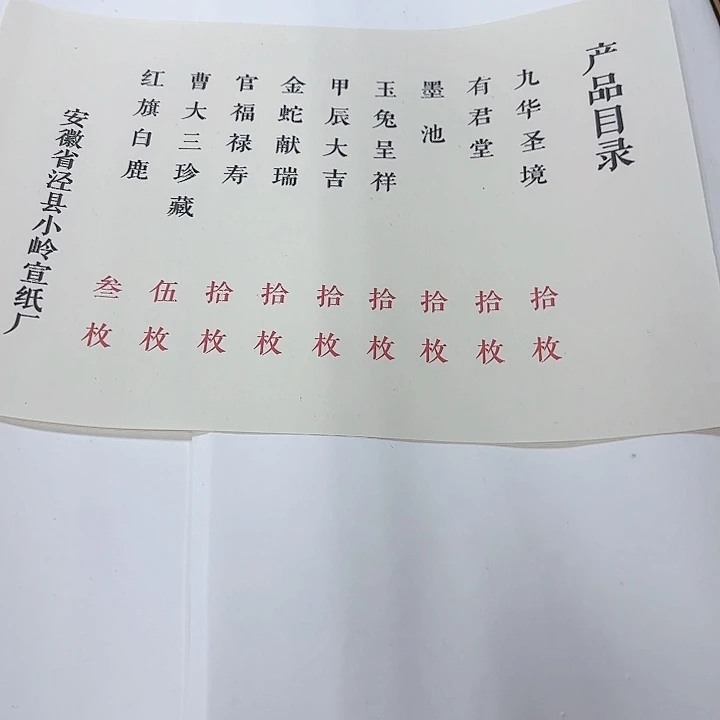 产品目录
九华圣境 拾枚
有君堂 拾枚
墨池 拾枚
玉兔呈祥 拾枚
甲辰大吉 拾枚
金蛇献瑞 拾枚
官福禄寿 拾枚
曹大三珍藏 伍枚
红旗白鹿 叁枚
安徽省泾县小岭宣纸厂